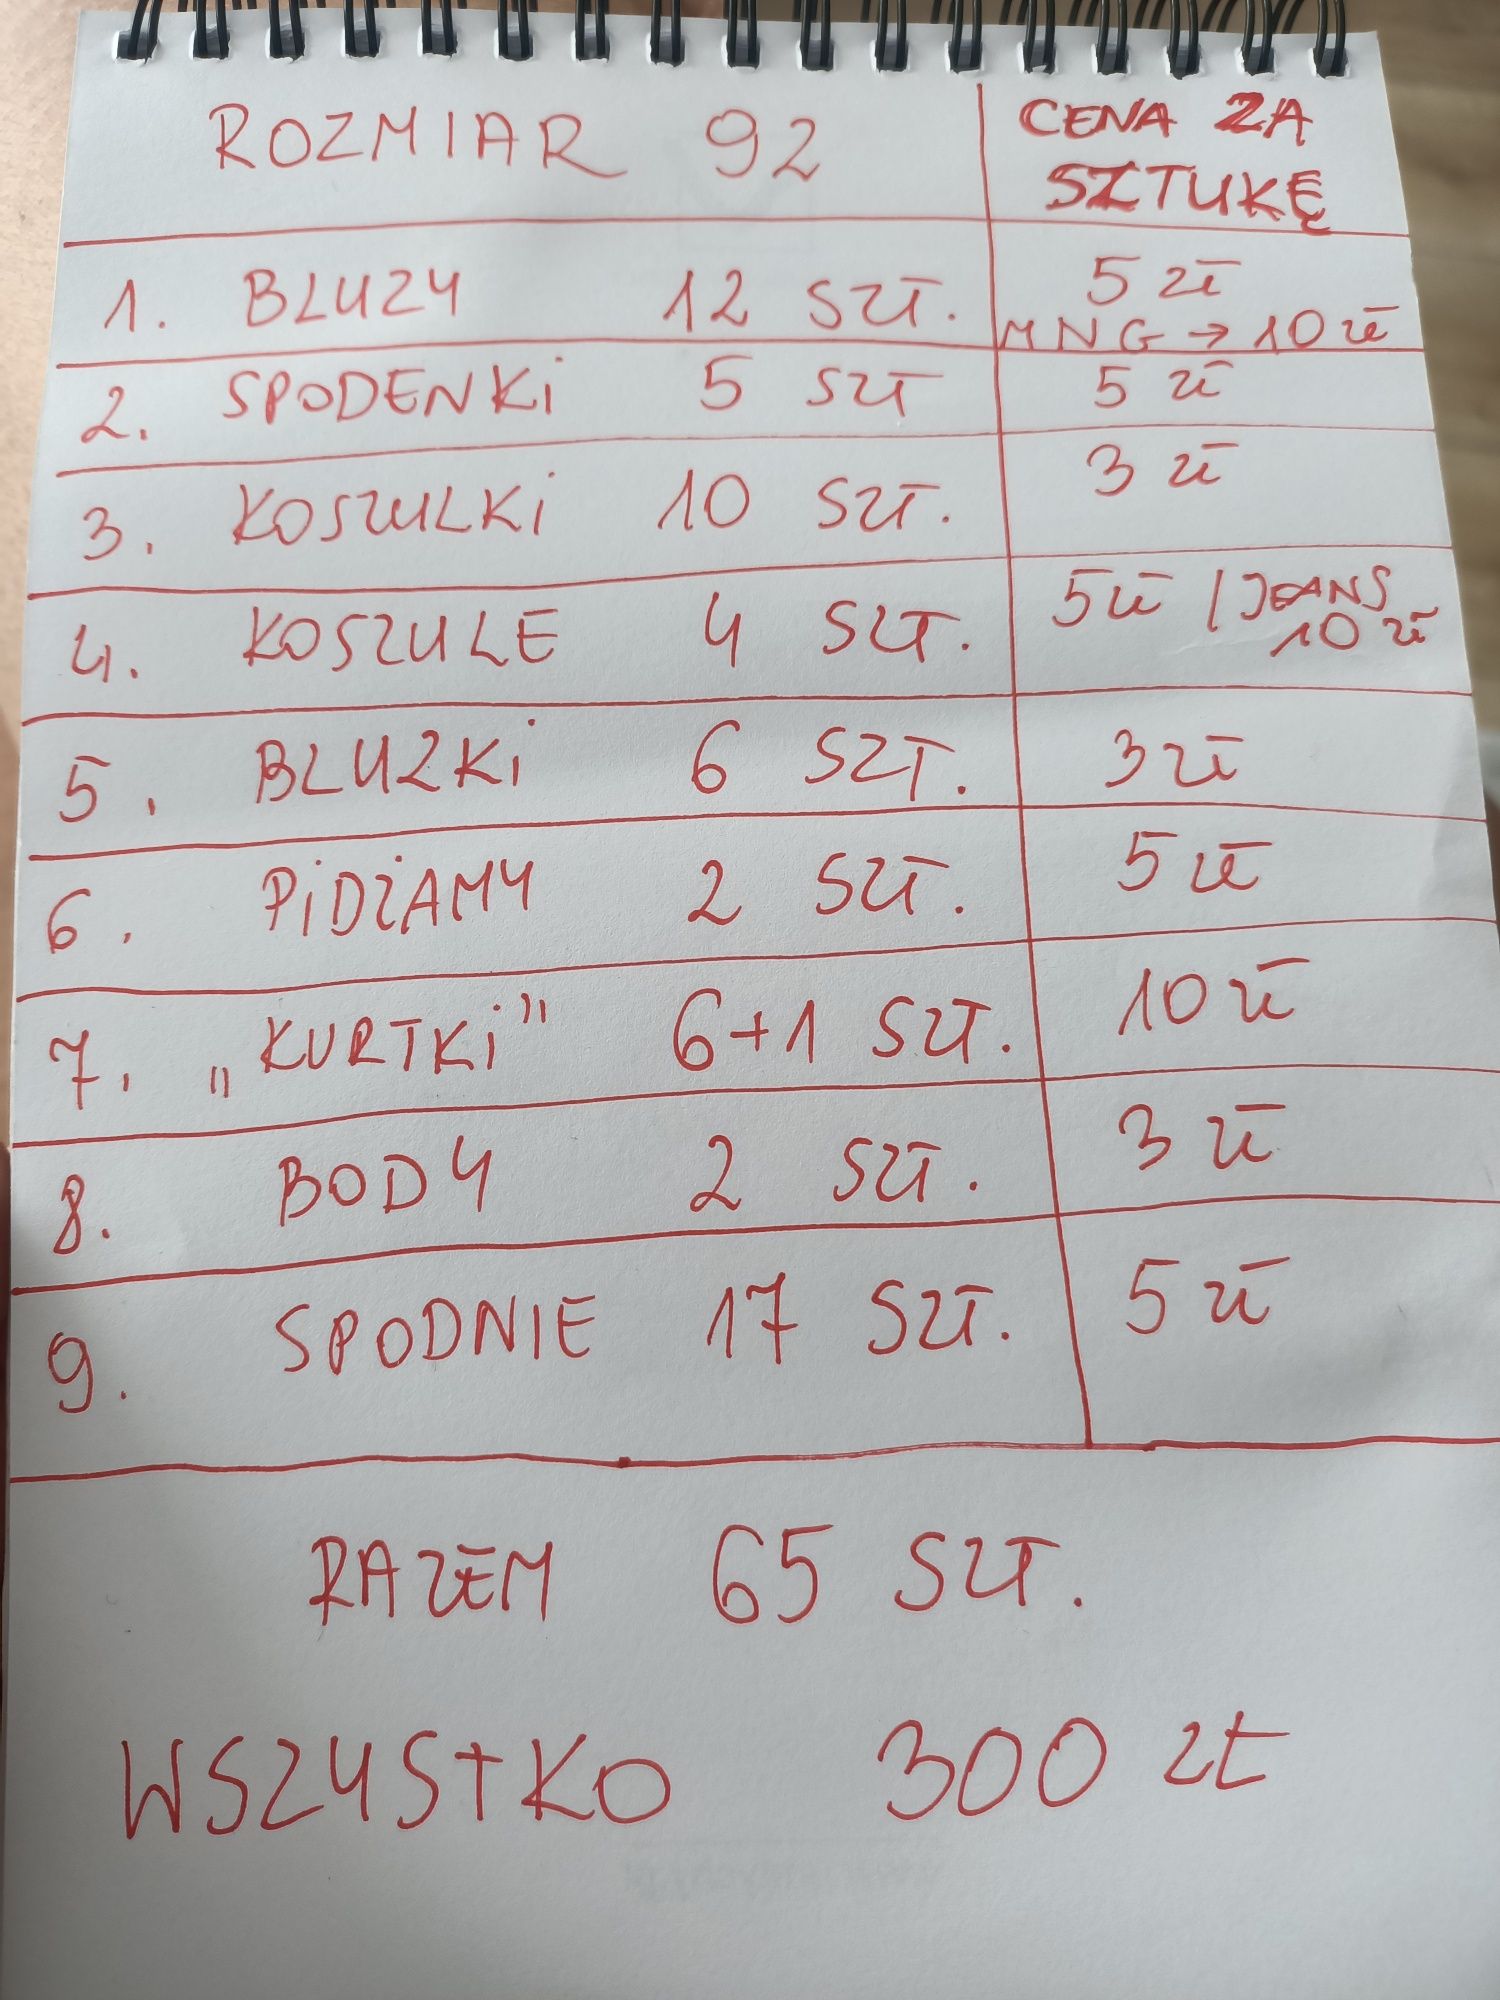 ROZMIAR 92 CENA ZA
SZTUKĘ
1. BLUZY 12 SZT. 5 zł
MNG → 10 zł
2. SPODENKI 5 SZT 5 zł
3. KOSZULKI 10 SZT. 3 zł
4. KOSZULE 4 SZT. 5 zł / JEANS
10 zł
5. BLUZKI 6 SZT. 3 zł
6. PIDŻAMY 2 SZT. 5 zł
7. „KURTKI" 6+1 SZT. 10 zł
8. BODY 2 SZT. 3 zł
9. SPODNIE 17 SZT. 5 zł
RAZEM 65 SZT.
WSZYSTKO 300 zł